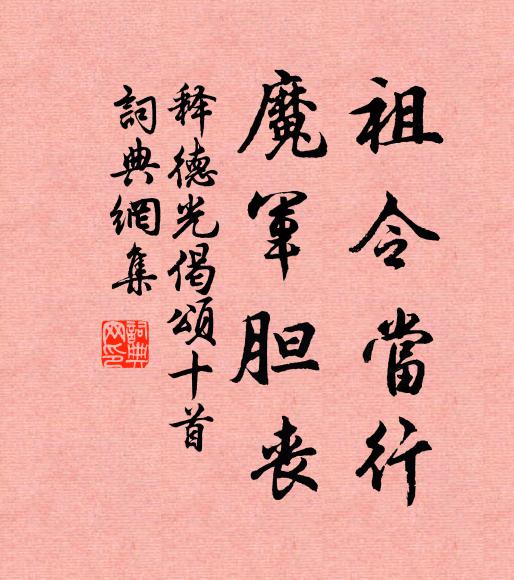 祖令當行
魔軍胆丧
释德光偈頌十首
詞典網集
詞典網印